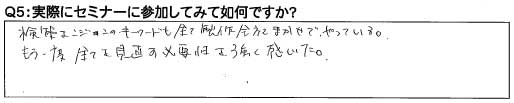 Q5:実際にセミナーに参加してみて如何ですか?
検索エンジンのキーワードも全て制作会社まかせで、やっている。
もう一度全てを見直す必要性を強く感じた。